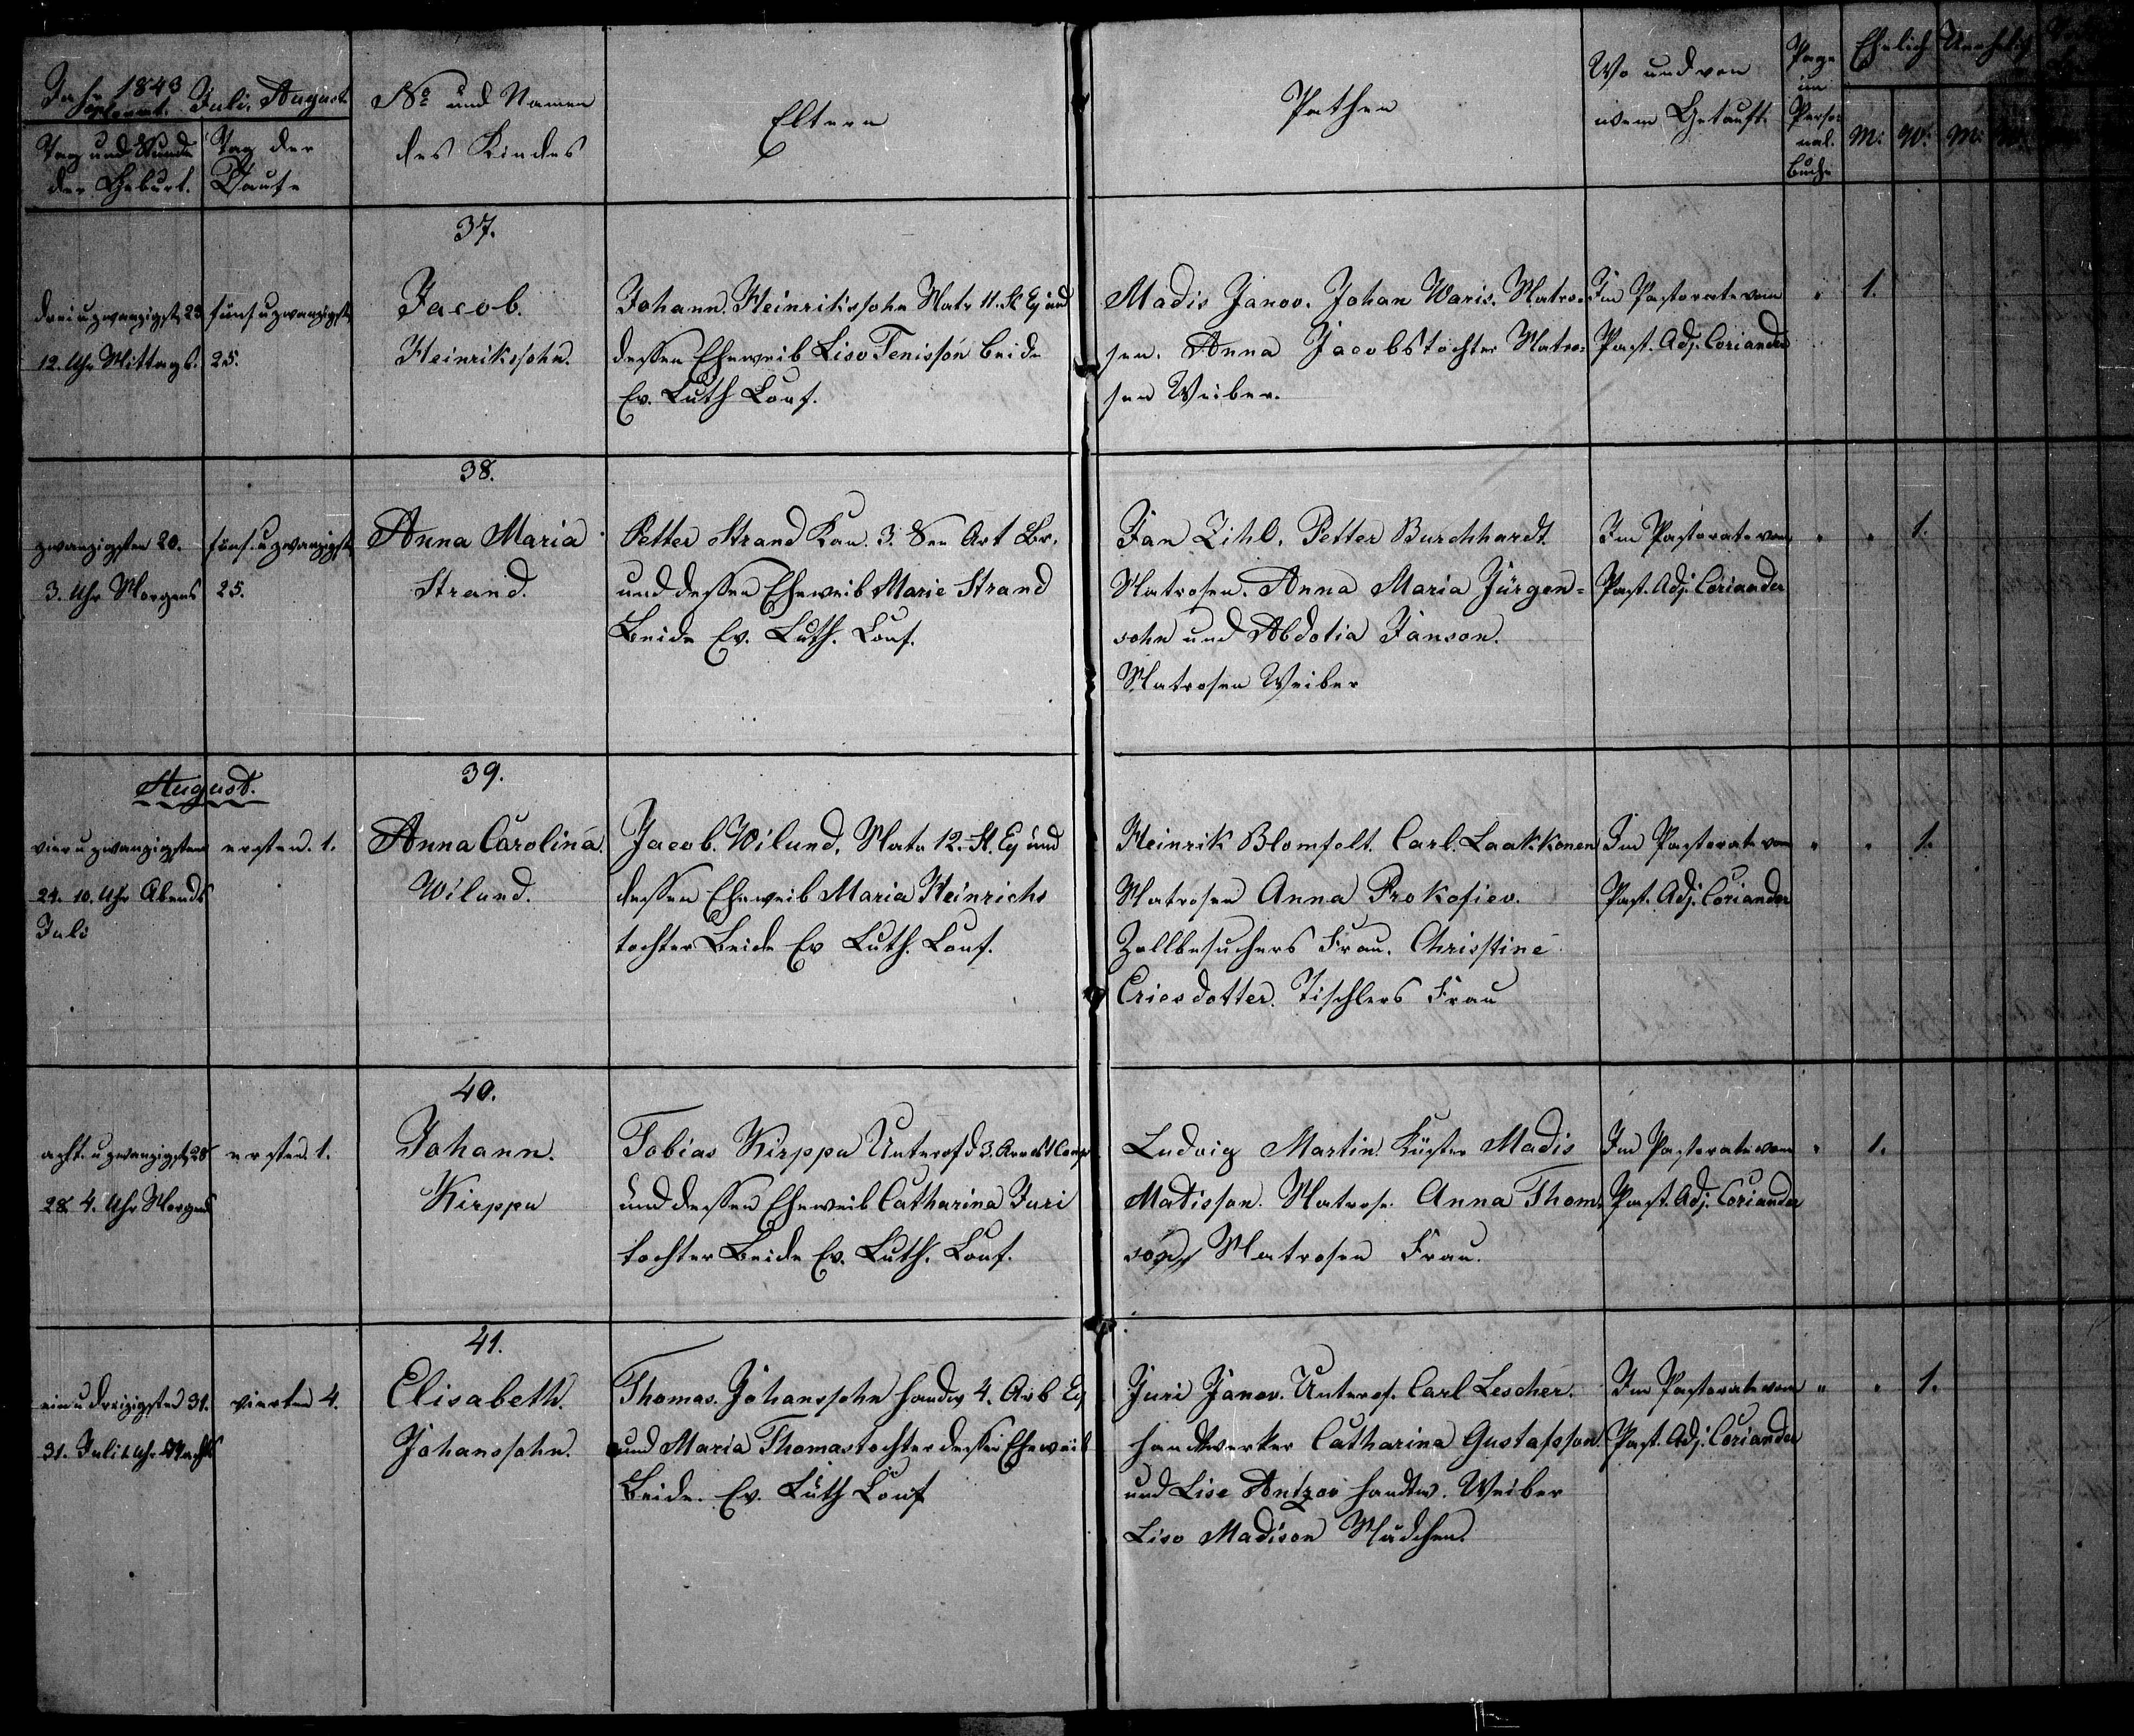 Jahr 1843
Juli. August
Tag und Stunde der Geburt.
Tag der Taufe
No und Namen
des Kindes
Eltern
Pathen
Wo und von
wem Getauft.
Page
im
Perso=
nal.
Buche
Ehelich Unehelich
M. W. M. W.
37.
dreiu.zwanzigst. 23
12. Uhr Mittags.
fünf u zwanzigst.
25.
Jacob.
Heinrikssohn.
Johann. Heinrikssohn Matr 11. Fl Eq und
dessen Eheweib Liso Tenisson beide
Ev. Luth Conf.
Madis Janov. Johan Waris. Matro=
sen. Anna Jacobstochter Matro=
sen Weiber.
Im Pastorate vom
Past. Adj. Coriander
1.
38.
zwanzigsten 20.
3. Uhr Morgens
fünf u zwanzigst.
25.
Anna Maria
Strand.
Petter Strand Kan. 3. See Art Br.
und dessen Eheweib Marie Strand
Beide Ev. Luth. Conf.
Jan Zihl. Petter Burchhardt.
Matrosen. Anna Maria Jürgen=
sohn und Abdotia Janson.
Matrosen Weiber
Im Pastorate vom
Past. Adj. Coriander
1.
August.
39.
vier u zwanzigsten
24. 10. Uhr Abends
Juli
ersten. 1.
Anna Carolina.
Wilund.
Jacob. Wilund, Matr 12. Fl. Eq und
dessen Eheweib Maria Heinrichs
tochter Beide Ev Luth. Conf.
Heinrik Blomfelt. Carl. Laakkonen
Matrosen Anna Prokofiev.
Zollbesuchers Frau. Chrisstine
Ericsdotter. Tischlers Frau
Im Pastorate vom
Past. Adj. Coriander
1.
40.
acht. u zwanzigst. 28
28. 4. Uhr Morgens
ersten 1.
Johann.
Kirppu
Tobias Kirppu Unterof d 3. Arrest Comp
und dessen Eheweib Catharina Juri
tochter Beide Ev. Luth. Conf.
Ludvig Martin Küster Madis
Madisson. Matrose. Anna Thom=
son, Matrosen Frau.
Im Pastorate vom
Past. Adj. Coriander
1.
41.
ein u dreizigsten 31.
31. Juli 1 Uhr Nachts
vierten 4.
Elisabeth.
Johanssohn.
Thomas. Johanssohn Handw 4. Arb Eq
und Maria Thomastochter dessen Eheweib
Beide. Ev. Luth Conf
Juri Janov. Unterof. Carl Lescher.
Handtwerker Catharina Gustafsson.
und Lise Antzov Handw. Weiber
Liso Madison Mädchen.
Im Pastorate vom
Past. Adj. Coriander
1.